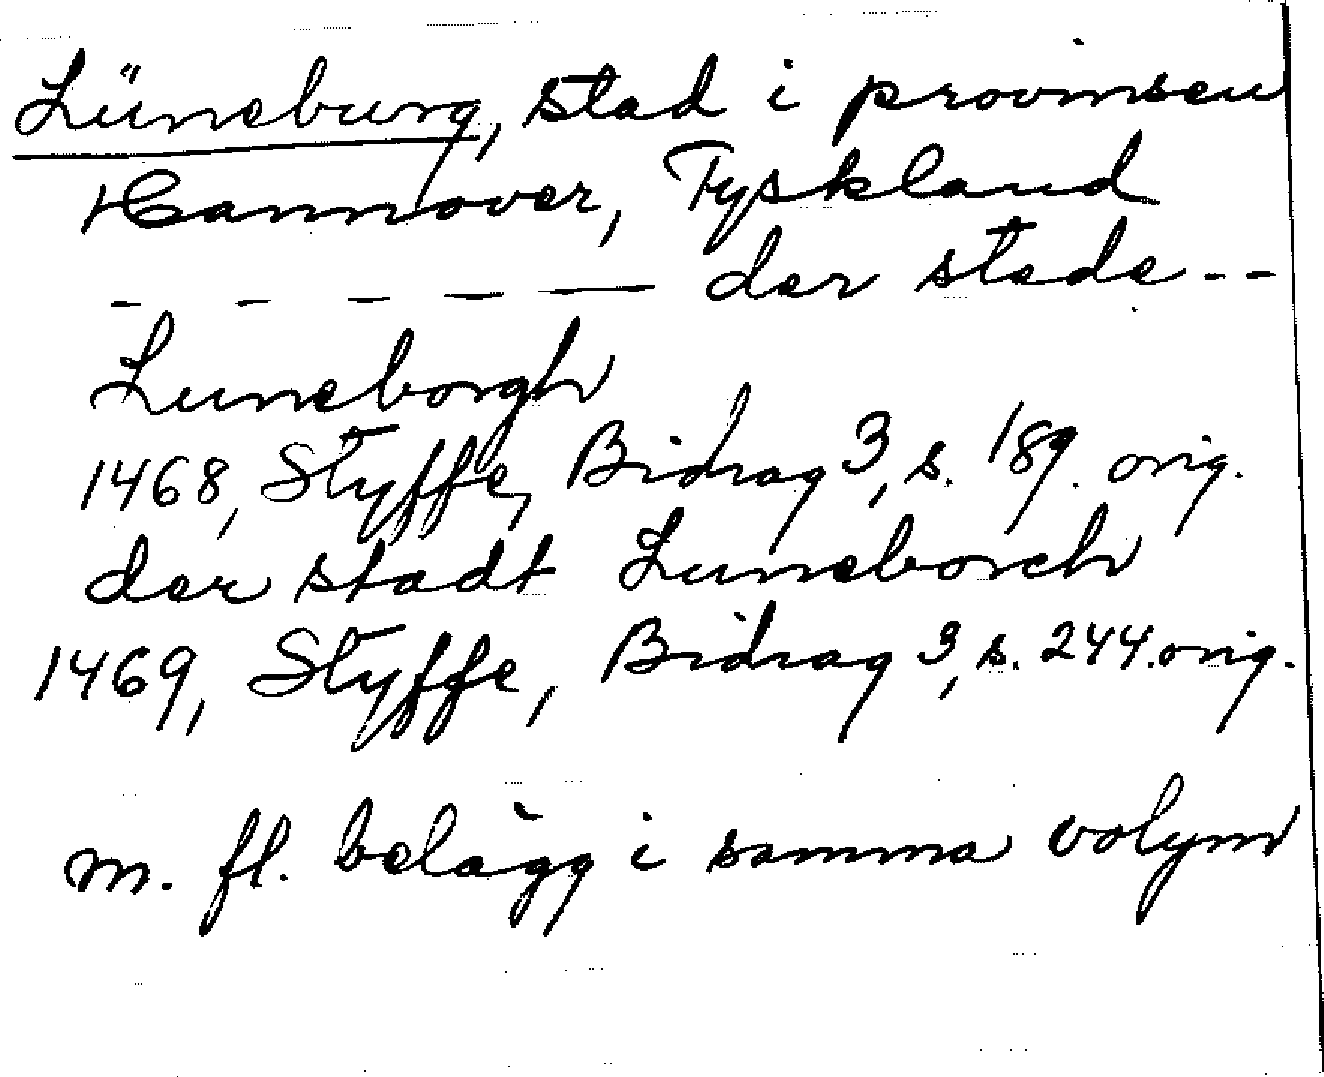 Lüneburg, stad i provinsen
Hannover, Tyskland
- - - - — der stede - -
Luneborgh
1468, Styffe, Bidrag 3, s. 189. orig.
der stadt Luneborch
1469, Styffe, Bidrag 3, s. 244. orig.
m. fl. belägg i samma volym